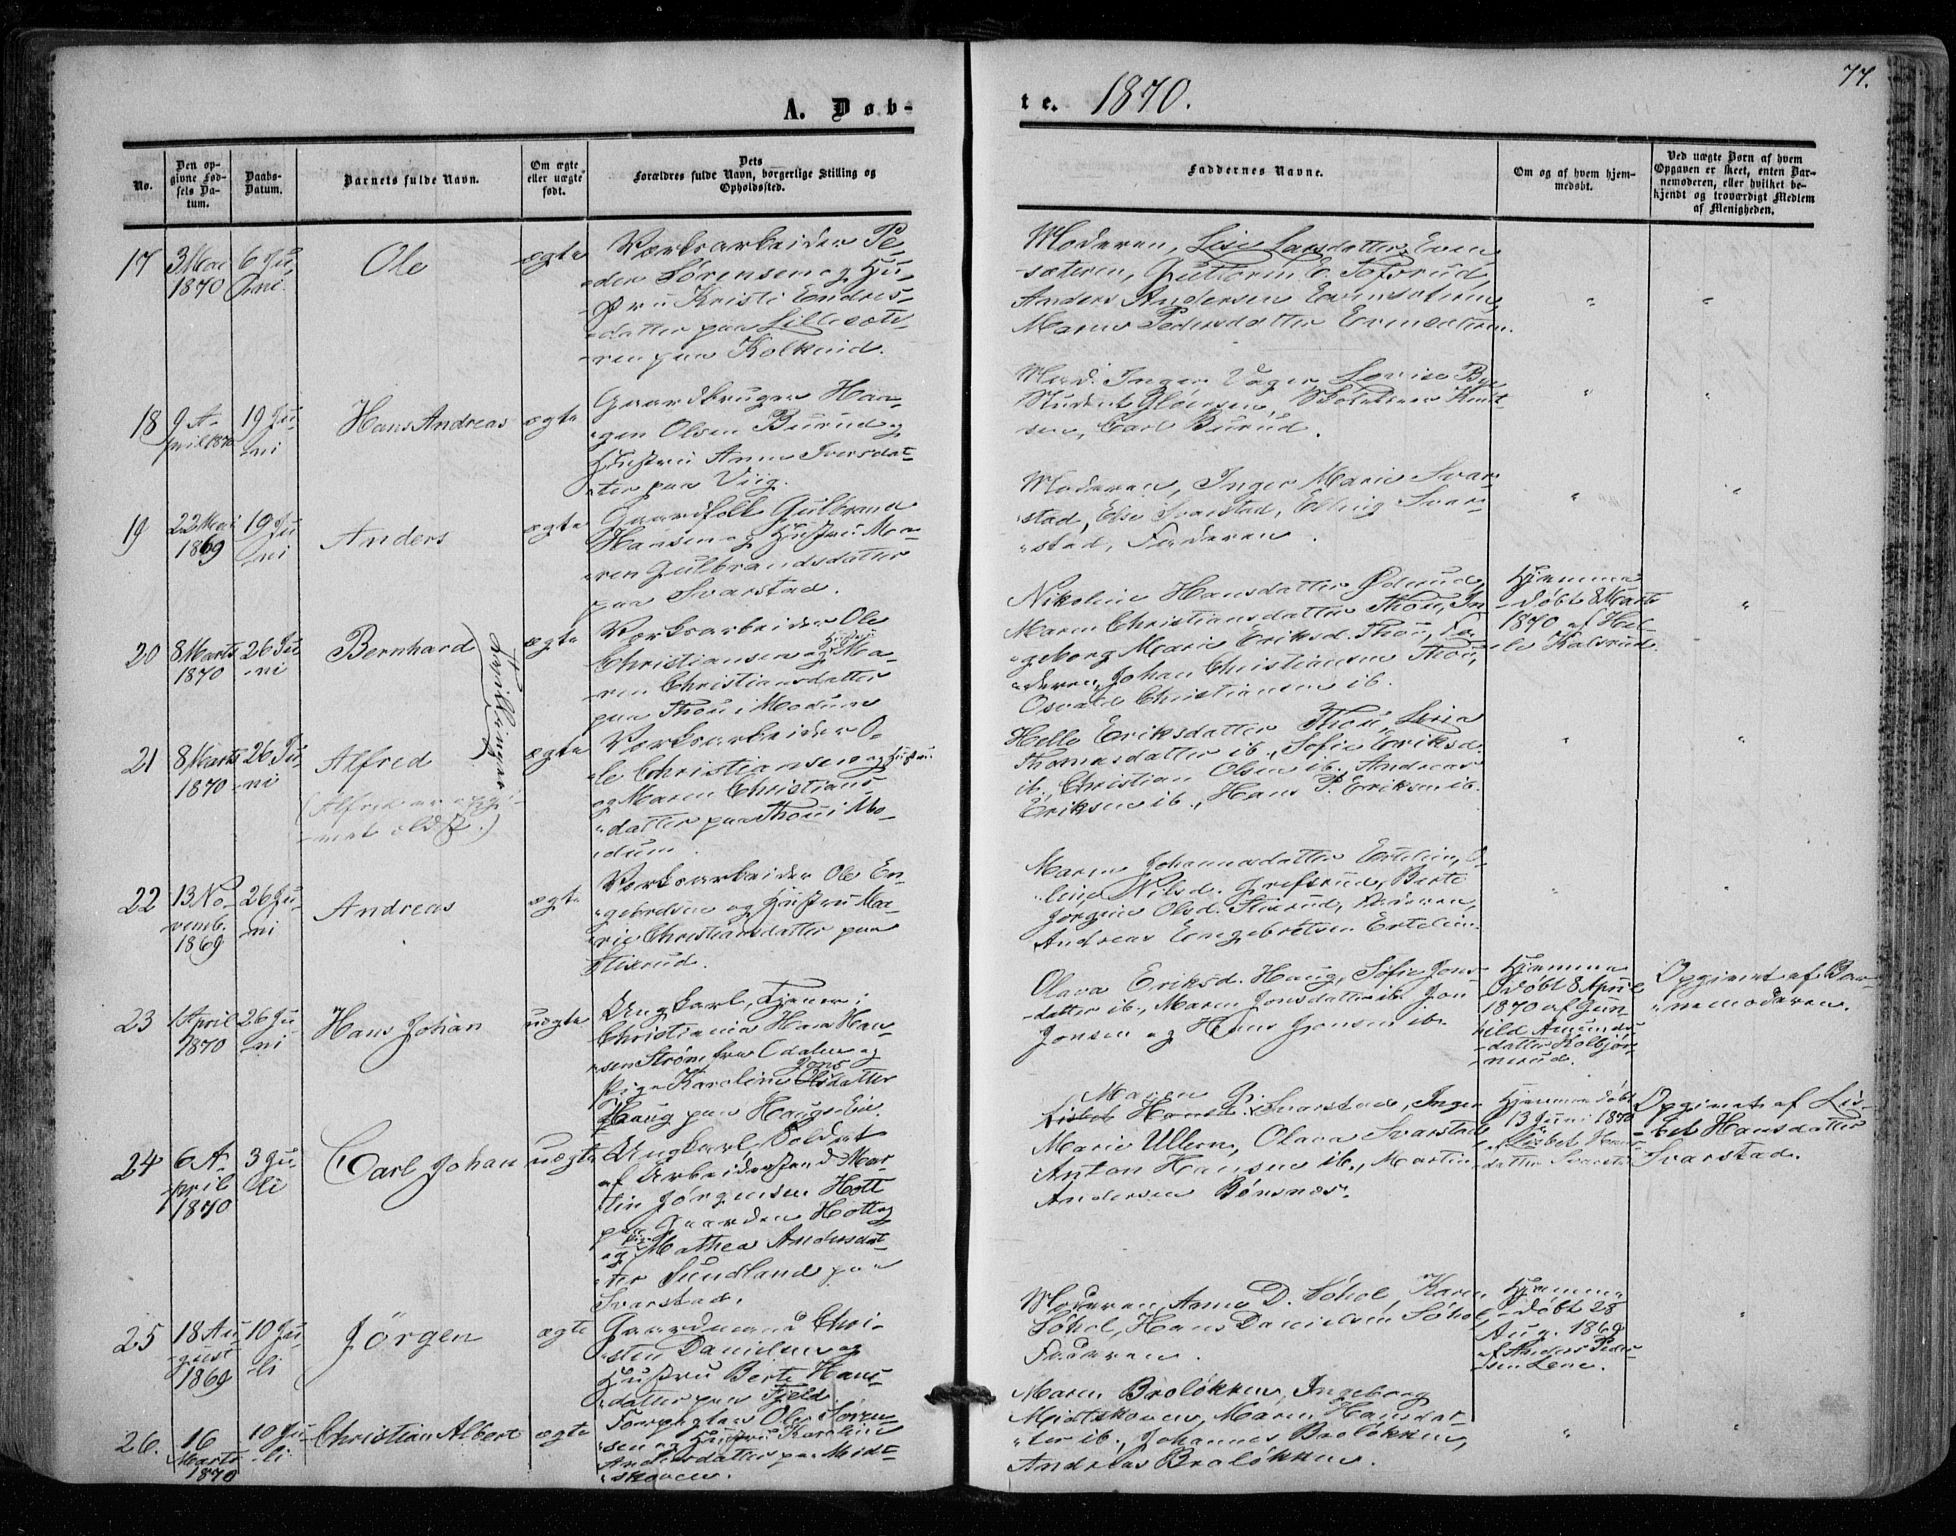 77.
A. Døb-
te. 1870.
No.
Den op-
givne Fød-
sels Da-
tum.
Daabs-
Datum.
Barnets fulde Navn.
Om ægte
eller uægte
født.
Dets
Forældres fulde Navn, borgerlige Stilling og
Opholdssted.
Faddernes Navne.
Om og af hvem hjem-
medøbt.
Ved uægte Børn af hvem
Opgaven er skeet, enten Bar-
nemoderen, eller hvilket be-
kjendt og troværdigt Medlem
af Menigheden.
17
3 Mai
1870
6 Ju-
ni
Ole
ægte
Værksarbeider Pe-
der Sørensen og Hu-
stru Kristi Endres-
datter paa Lillesæte-
ren paa Kolkind.
Moderen, Lise Larsdatter Even-
sæteren, Guttorm E. Tofsrud,
Anders Andersen Evensæteren,
Maren Pedersdatter Evensæteren.
"
"
18
9 A-
pril 1870
19 Ju-
ni
Hans Andreas
ægte
Gaardbruger Haa-
gen Olsen Burud og
Hustru Anne Iversdat-
ter paa Viig.
Mod. Inger Vager, Lovise Bye
Student Gløersen, Knut-
sen, Carl Burud.
"
"
19
22 Mai
1869
19 Ju-
ni
Anders
ægte
Gaardfolk Gulbrand
Hansen og Hustru Ma-
ren Gulbrandsdatter
paa Svarstad.
Moderen, Inger Marie Svar-
stad, Else Svarstad, Elling Svar-
stad, Faderen.
"
"
20
8 Marts
1870
26 Ju-
ni
Bernhard
Tvillinger
ægte
Værksarbeider Ole
Christiansen og Hustru Ma-
ren Christiansdatter
paa Thou i Modum
Nikoline Hansdatter Ødnud,
Maren Christiansdatter Thou, In-
geborg Marie Eriksd. Thou, Fa-
deren, Johan Christiansen Thou,
Osvald Christiansen ib.
Hjemme-
døbt 8 Marts
1870 af Hel-
le Kalsrud.
"
21
8 Marts
1870
26 Ju-
ni
Alfred
(Alfred er opgi-
vet ældst.)
ægte
Værksarbeider O-
le Christiansen og Hustru
og Maren Christians-
datter paa Thou i Mo-
dum.
Helle Eriksdatter Thou, Lisa
Thomasdatter ib., Sofie Eriksd.
ib., Christian Olsen ib., Andreas
Eriksen ib., Hans P. Eriksen ib.
"
"
22
13 No-
vemb.
1869
26 Ju-
ni
Andreas
ægte
Værksarbeider Ole En-
gebretsen og Hustru Ma-
rie Christiansdatter paa
Stixrud.
Maren Johannesdatter Ertelien, O-
line Nilsd. Grefsrud, Berte
Jørgine Olsd. Stixrud, Faderen
Andreas Engebretsen Ertelien
"
"
23
1 April
1870
26 Ju-
ni
Hans Johan
uægte
Ungkarl, Tjener i
Christiania Hans Han-
sen Strøm fra Odalen og
Pige Karoline Jons Olsdatter
Haug paa Haugs Eie.
Olava Eriksd. Haug, Sofie Jons-
datter ib., Maren Jonsdatter ib. Jon
Jonsen og Hans Jonsen ib.
Hjemme-
døbt 8 April
1870 af Gun-
hild Amunds-
datter Kolbjør-
nrud.
Opgivet af Bar-
nemoderen.
24
6 A-
pril
1870
3 Ju-
li
Carl Johan
uægte
Ungkarl, Soldat
af Arbeiderstand Mar-
tin Jørgensen Hott
paa Gaarden Hotte
og Pige Mathea Andersdat-
ter Sundland paa
Svarstad.
Maren G.
Lisbet Hansd. Svarstad, Inger
Marie Ullern, Olava Svarstad
Anton Hansen ib., Martin
Andersen Bønsnæs.
Hjemmedøbt
13 Juni 1870
af Lisbet Hans-
datter Svarstad
Opgivet af Lis-
bet Hansdatter
Svarstad.
25
18 Au-
gust
1869
10 Ju-
li
Jörgen
ægte
Gaardmand Chri-
sten Danielsen og
Hustru Berte Hans-
datter paa Fjeld.
Moderen, Anne D. Søhol, Karen
Søhol, Hans Danielsen Søhol,
Faderen.
Hjemme-
døbt 25
Aug. 1869
af Anders Peder-
sen Lene.
"
26.
16
Marts
1870
10 Ju-
li
Christian Albert
ægte
Forpagter Ole Søren-
sen og Hustru Karoline
Andersdatter paa Midt-
skoven.
Maren Broløkken, Ingeborg
Midtskoven, Maren Hansdat-
ter ib., Johannes Broløkken,
Andreas Broløkken.
"
"